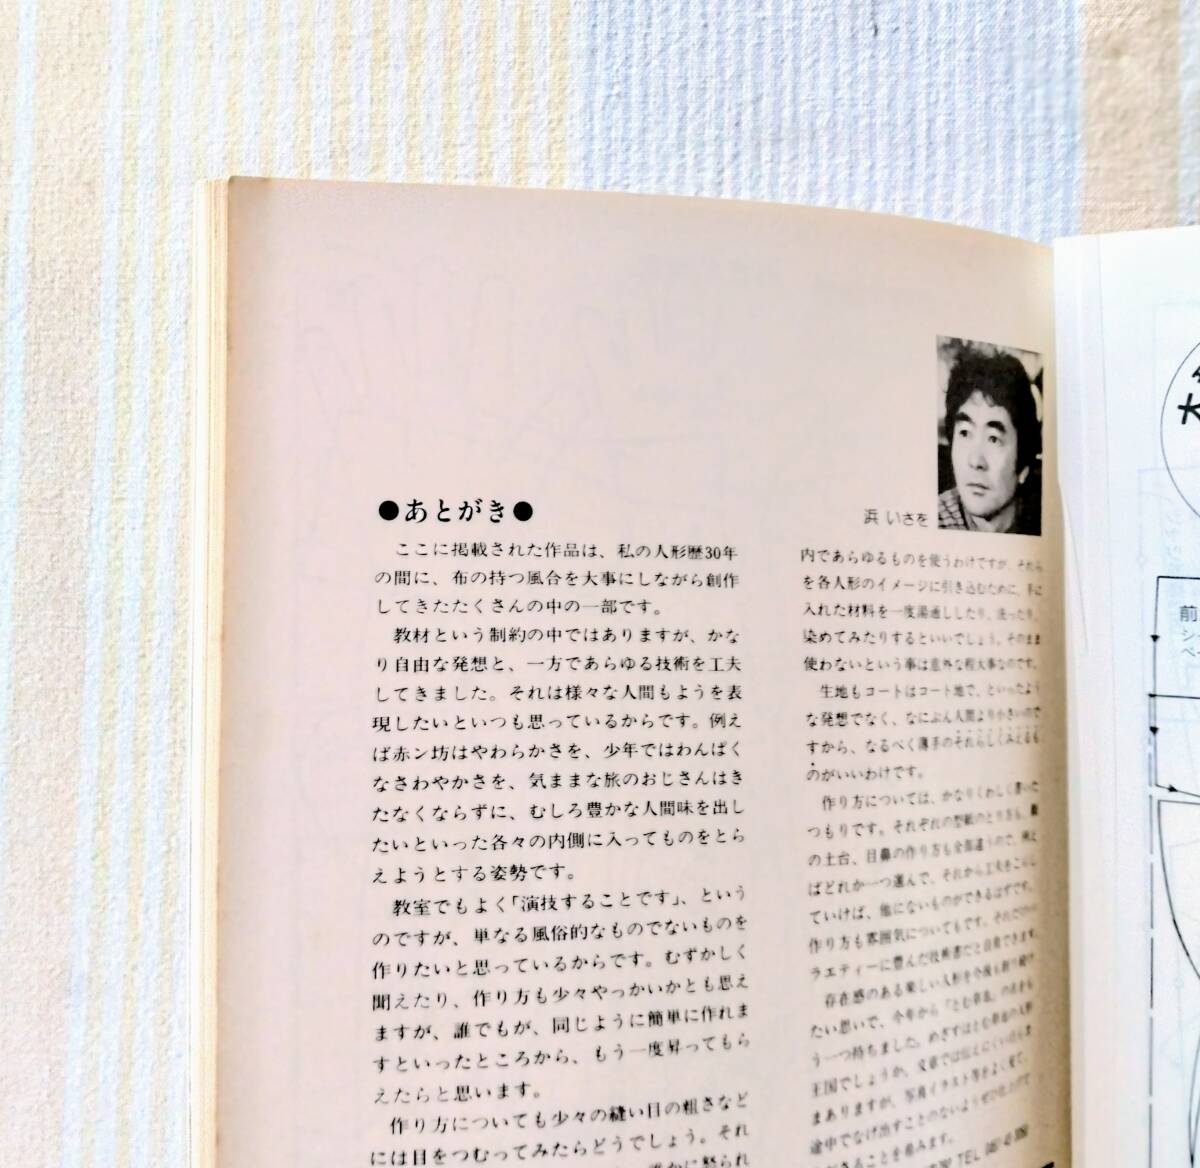 ●あとがき●
ここに掲載された作品は、私の人形歴30年
の間に、布の持つ風合を大事にしながら創作
してきたたくさんの中の一部です。
教材という制約の中ではありますが、かな
り自由な発想と、一方であらゆる技術を工夫
してきました。それは様々な人間もようを表
現したいといつも思っているからです。例え
ば赤ン坊はやわらかさを、少年ではわんぱく
なさわやかさを、気ままな旅のおじさんはき
たなくならずに、むしろ豊かな人間味を出し
たいといった各々の内側に入ってものをとら
えようとする姿勢です。
教室でもよく「演技することです」、という
のですが、単なる風俗的なものでないものを
作りたいと思っているからです。むずかしく
聞えたり、作り方も少々やっかいかとも思え
ますが、誰でもが、同じように簡単に作れま
すといったところから、もう一度昇ってもら
えたらと思います。
作り方についても少々の縫い目の粗さなど
には目をつむってみたらどうでしょう。それ
浜 いさを
内であらゆるものを使うわけですが、それら
を各人形のイメージに引き込むために、手に
入れた材料を一度湯通ししたり、洗ったり、
染めてみたりするといいでしょう。そのまま
使わないという事は意外な程大事なのです。
生地もコートはコート地で、といったよう
な発想でなく、なにぶん人間より小さいので
すから、なるべく薄手のそれらしくみえるも
のがいいわけです。
作り方については、かなりくわしく書いた
つもりです。それぞれの型紙のとり方も、
の土台、目鼻の作り方も全部違うので、例え
ばどれか一つ選んで、それから工夫をこらし
ていけば、他にないものができるはずです。
作り方も雰囲気についてもです。それだけ
ラエティーに豊んだ技術書だと自負できます。
存在感のある楽しい人形を今後も創り続け
たい思いで、今年から「とむ
う一つ持ちました。めざすはとむ
王国でしょうか。文章では伝えにくい
まありますが、写真イラスト等をよく見て、
途中でなげ出すことのないよう
ことを希みます。
TEL
大
前
シ
ペ